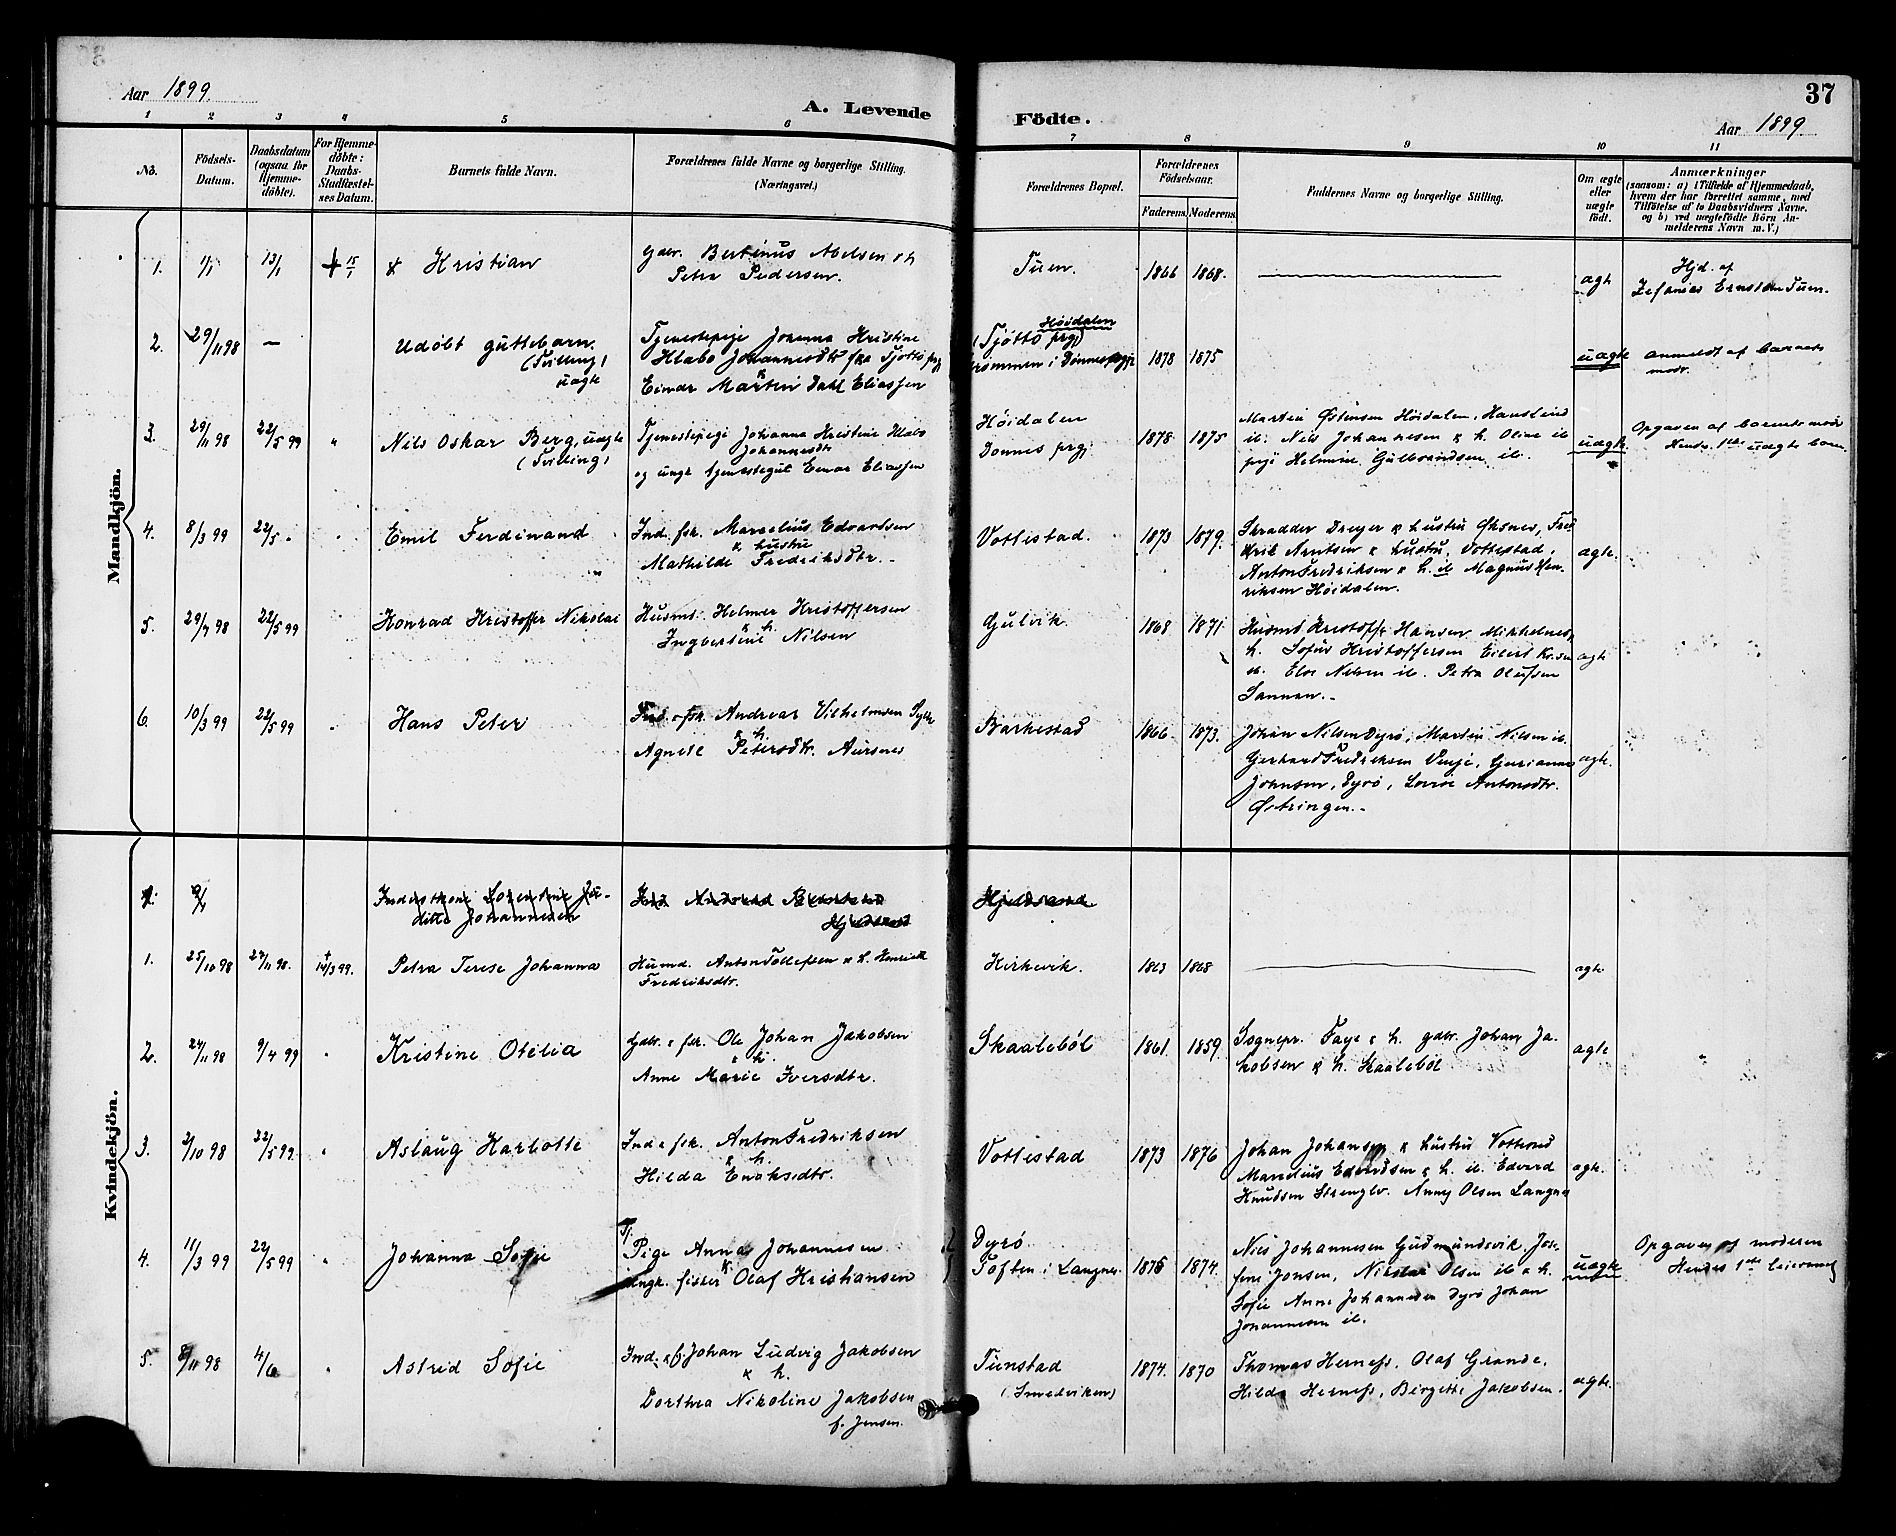 37
Aar 1899.
A. Levende Födte.
Aar 1899
1 2 3 4 5 6 7 8 9 10 11
No.
Födsels-Datum.
Daabsdatum (ogsaa for Hjemme-döbte).
For Hjemme-döbte: Daabs-Stadfæstel-ses Datum.
Barnets fulde Navn.
Forældrenes fulde Navne og borgerlige Stilling. (Næringsvei.)
Forældrenes Bopæl.
Forældrenes Födselsaar.
Faderens. Moderens.
Faddernes Navne og borgerlige Stilling.
Om ægte eller uægte födt.
Anmærkninger
(saasom: a) i Tilfælde af Hjemmedaab,
hvem der har forrettet samme, med
Tilföielse af to Daabsvidners Navne.
og b) ved uægtefödte Börn An-
melderens Navn m. V.)
Mandkjön.
1. 1/1 13/1 + 15/1 Kristian
Gdbr. Bertinus Abelsen & h
Petra Pedersen.
Tuen. 1866 1868. agte
Hjd. af
Zefanias Ernstsen Tuen.
2. 29/11 98 — Udöbt guttebarn.
(Tvilling)
uagte
Tjenestepige Johanna Kristine
Hlabo Johannesdtr fra Tjøtto prgj
& Einar Martin Dahl Eliassen
Høidalen
(Tjøtto prgj)
i Dønnes prgj. 1878 1875 uagte
Anmeldt af barnets
moder.
3. 29/11 98 22/5 99 " Nils Oskar Berg, uagte
(Tvilling)
Tjenestepige Johanna Kristine Hlabo
Johannesdtr
og ungk tjenestegut Einar Eliassen
Høidalen
Dønnes prgj 1878 1875
Martin Østensen Høidalen, Hanstind
ib. Nils Johannesen & h. Oline ib
pige Helmine Gulbrandsen ib. uagte.
Opgaven af barnets mod
Hendes 1ste uagte barn
4. 8/3 99 22/5 " " Emil Ferdinand
Ind. fsk. Marselius Edvardsen
& hustru
Mathilde Fredriksdtr.
Vottestad. 1873 1879.
Skrædder Dreyer & hustru Øksnes, Fred
rik Arntsen & hustru, Vottestad,
Anton Fredriksen & h. ib Magnus Hen-
riksen Høidalen. agte.
5. 29/7 98 22/5 99 Konrad Kristoffer Nikolai
Husmd. Helmer Kristoffersen
& h.
Ingbertine Nilsen
Gulvik 1868 1871
Husmd Kristoffer Hansen
h. Sofus Kristoffersen
Nilsen ib. Petra Olufsen
Sannan. agte
6. 10/3 99 22/5 99 Hans Peter
Ind. & fsk. Andreas Vilhelmsen
& h.
Agnete Petersdtr. Aursnes
Barkestad 1866 1873.
Johan Nilsen Dyrø, Martin Nilsen ib.
Gerhard Fredriksen Vinje,
Johnsen, Dyrø, Lovise Antonsdtr.
Østringen. agte.
Kvindekjön.
Hjeldsand
1. 25/10 98 27/11 98. + 14/3 99. Petra Terese Johanna
Husmd. Anton Tollefsen & h. Henriette
Fredriksdtr.
Kirkevik. 1863 1868 agte
2. 27/11 98 9/4 99 " Kristine Otelia
Gdbr. & fsk. Ole Johan Jakobsen
& h.
Anne Marie Iversdtr.
Skaalebøl 1861 1859.
Sognepr. Faye & h. gdbr. Johan Ja-
kobsen & h. Skaalebøl agte
3. 2/10 98 22/5 99 " Aslaug Harlotte
Ind & fsk. Anton Fredriksen
& h.
Hilda Enoksdtr.
Vottestad 1873 1876
Johan Johansen & hustru Vottestad
Marselius Edvardsen & h. ib. Edvard
Knudsen Strenglv. Anny Olsen Langnes agte.
4. 11/3 99 22/5 99 " Johanna Sofie
Tj.
Pige Anna Johannesen
& ungk. fisker Olaf Kristiansen
Dyrø
Toften i Langnes. 1875 1874.
Nils Johannesen Gudmundsvik, Jo-
fine Jonsen, Nikolai Olsen ib & h.
Sofie Anne Johannesen Dyrø Johan
Johannesen ib. uagte
Opgaven af moderen
Hendes 1ste leiermaal
5. 8/11 98 4/6 " Astrid Sofie
Ind. & f. Johan Ludvig Jakobsen
& h.
Dorthea Nikoline Jakobsen
f. Jensen.
Tunstad
(Smedviken) 1874. 1870
Thomas Herness, Olaf Grande,
Hilda Herness, Birgitte Jakobsen. agte.